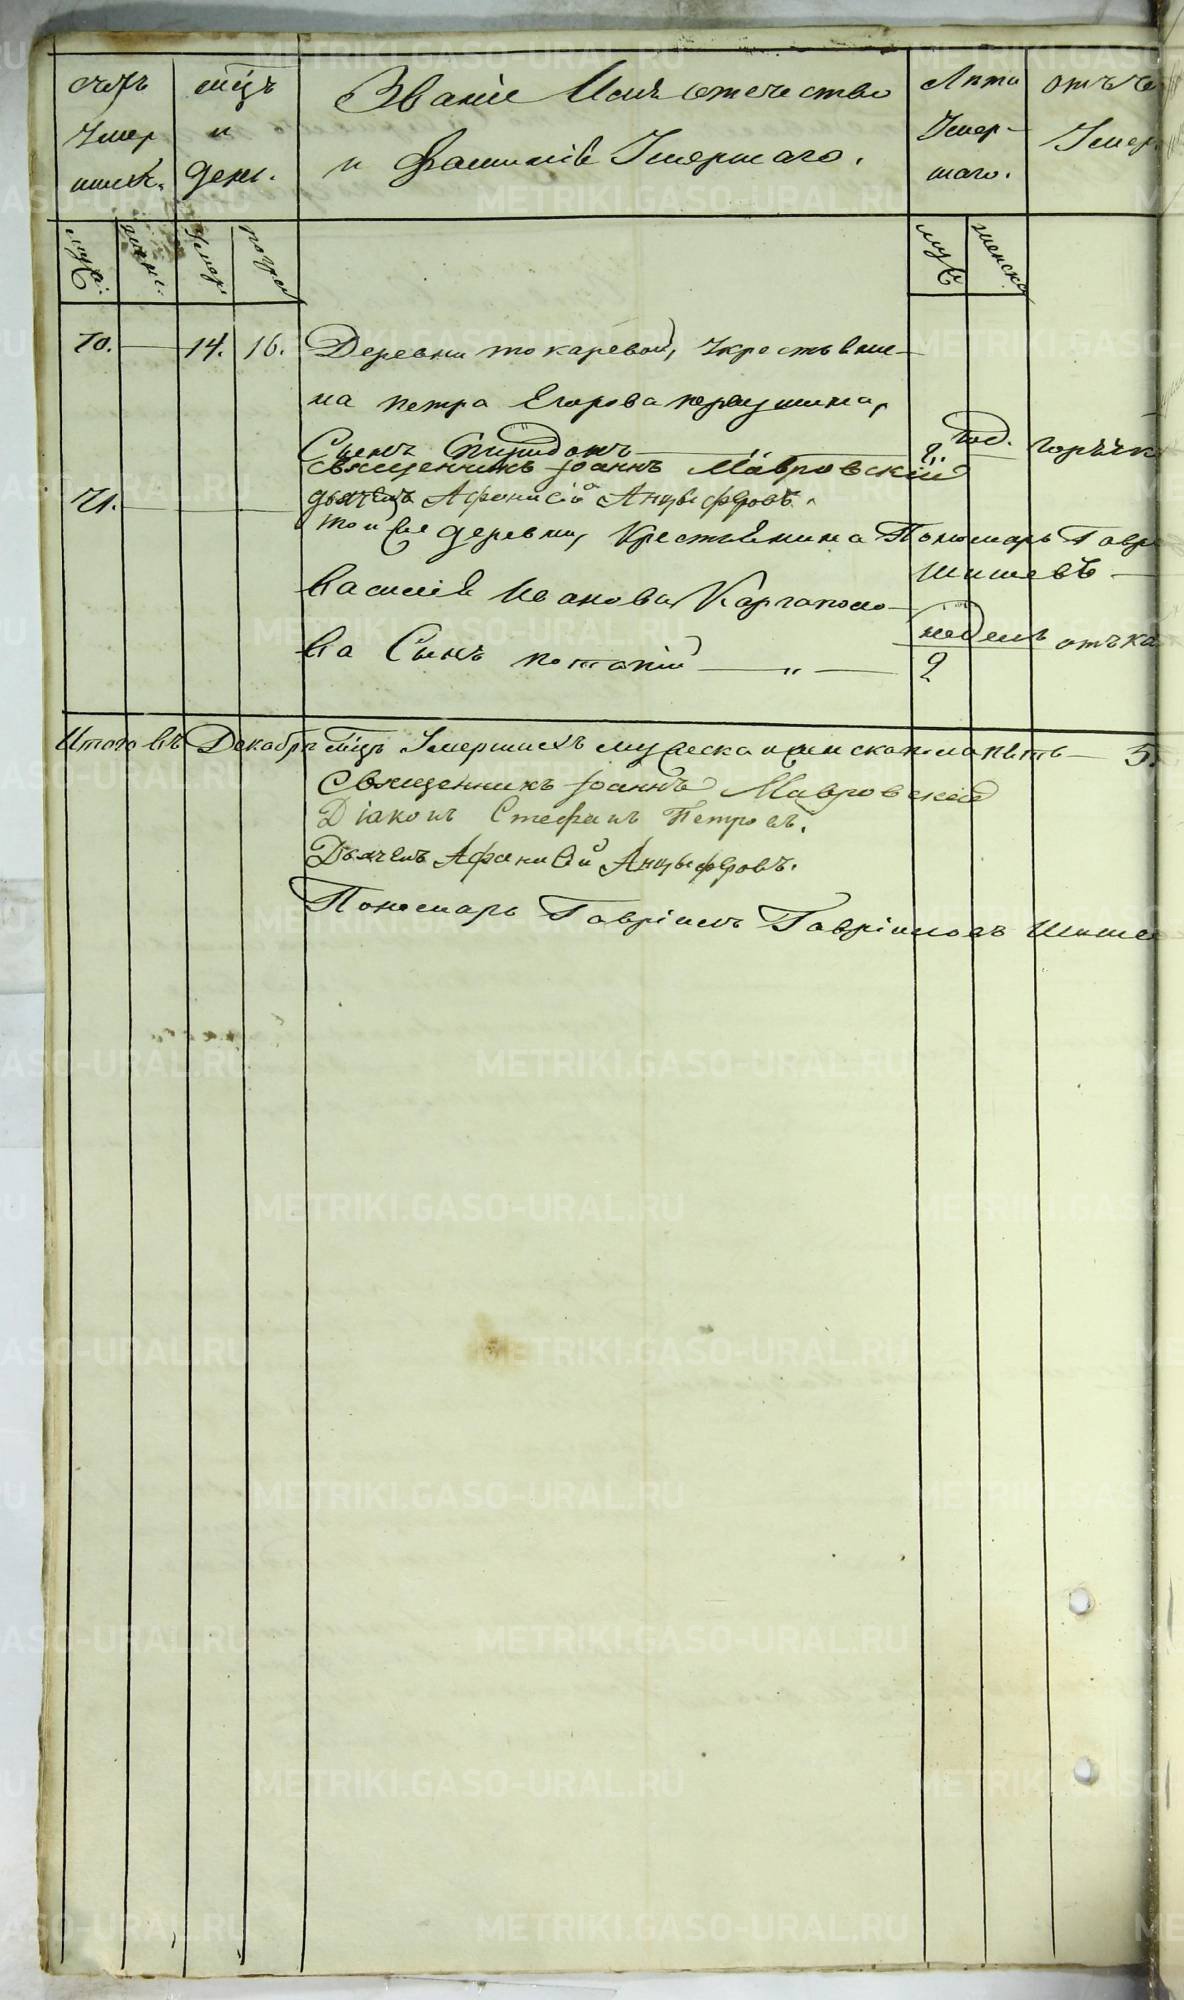 счетъ
Умер
шихъ.
мц̃ъ
и
день.
Званіе Имя отечество
и Фамиліе Умершаго.
Лѣта
Умер-
шаго.
отъ че
Умер
муж:
женс.
умер.
погре.
муж
женска
70. — 14. 16. Деревни токаревой, Укрестьяни-
на петра Егорова
Сынъ Спиридонъ — 2 год. горячк
священникъ Іоаннъ Мавровскій
71. — дьячекъ Афонасій Анцыферовъ.
тойже деревни, Крестьянина Пономарь Гавр
Шишевъ —
Василія Иванова Каргаполо-
ва Сынъ потапій — „ — недель 2 отъ ка
Итого въ Декабрѣ мц̃ѣ Умершихъ мужеска и женска пола пять — 5.
Священникъ Іоаннъ Мавровскій
Діаконъ Стефанъ Петровъ.
Дьячекъ Афанасій Анцыферовъ.
Пономарь Гавріилъ Гавріиловъ Шише
METRIKI.GASO-URAL.RU